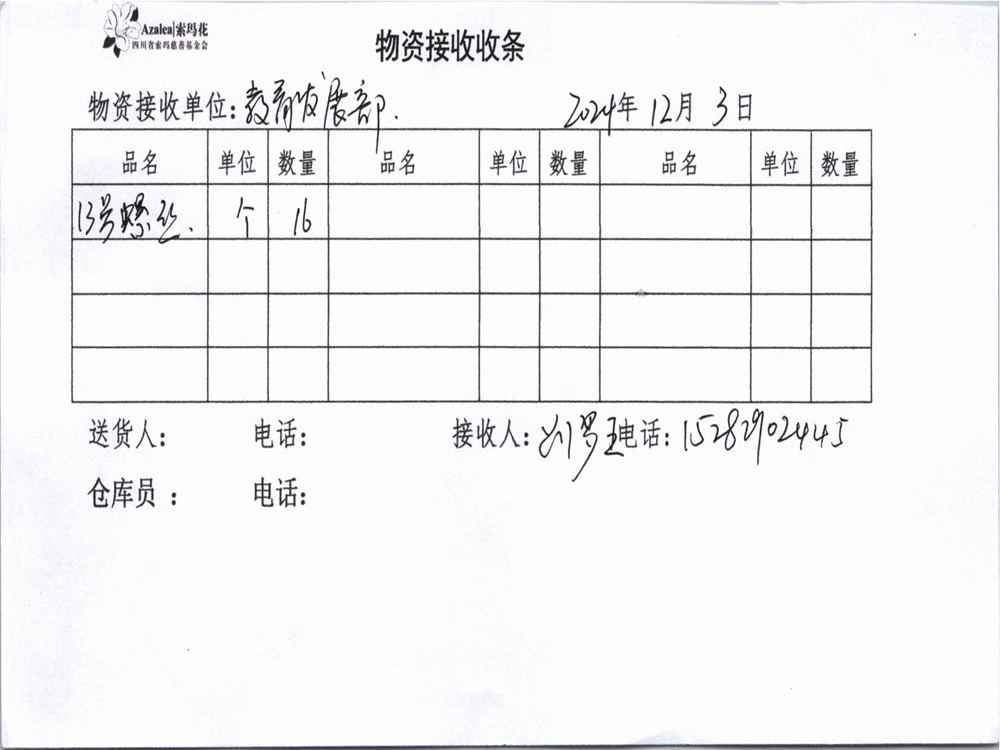 Azalea|索玛花
四川省索玛慈善基金会
物资接收收条
物资接收单位:教育发展部. 2024年 12月 3日
品名 单位 数量 品名 单位 数量 品名 单位 数量
13号螺丝. 个 16
送货人: 电话: 接收人:刘罗王 电话:15282902445
仓库员: 电话: